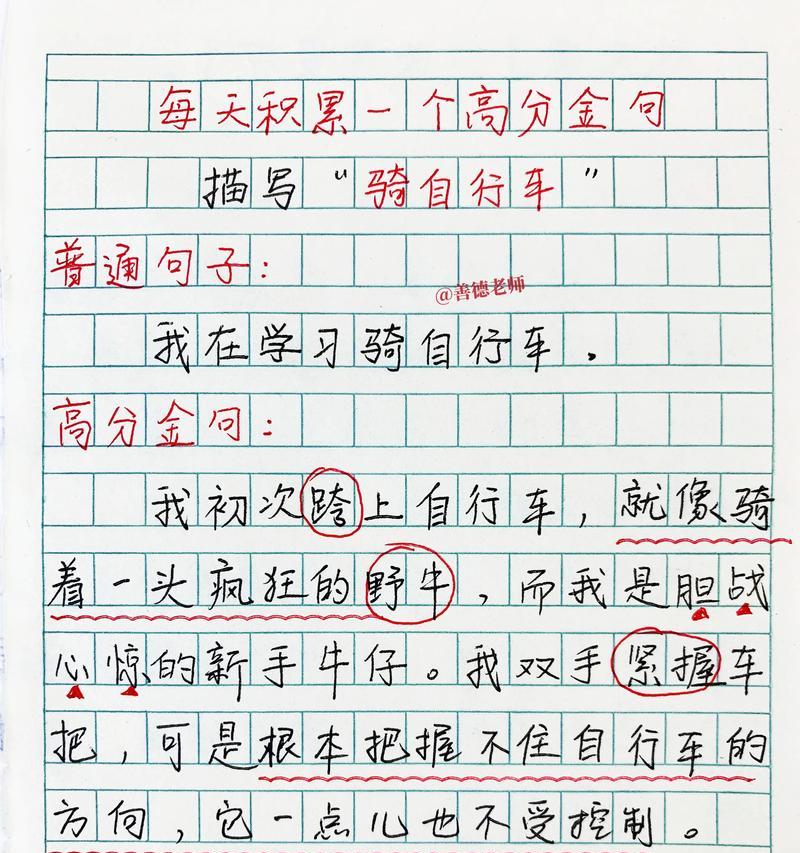 每天积累一个高分金句
描写“骑自行车”
普通句子:
@善德老师
我在学习骑自行车.
高分金句:
我初次跨上自行车,就像骑
着一头疯狂的野牛,而我是胆战
心惊的新手牛仔。我双手紧握车
把,可是根本把握不住自行车的
方向,它一点儿也不受控制。